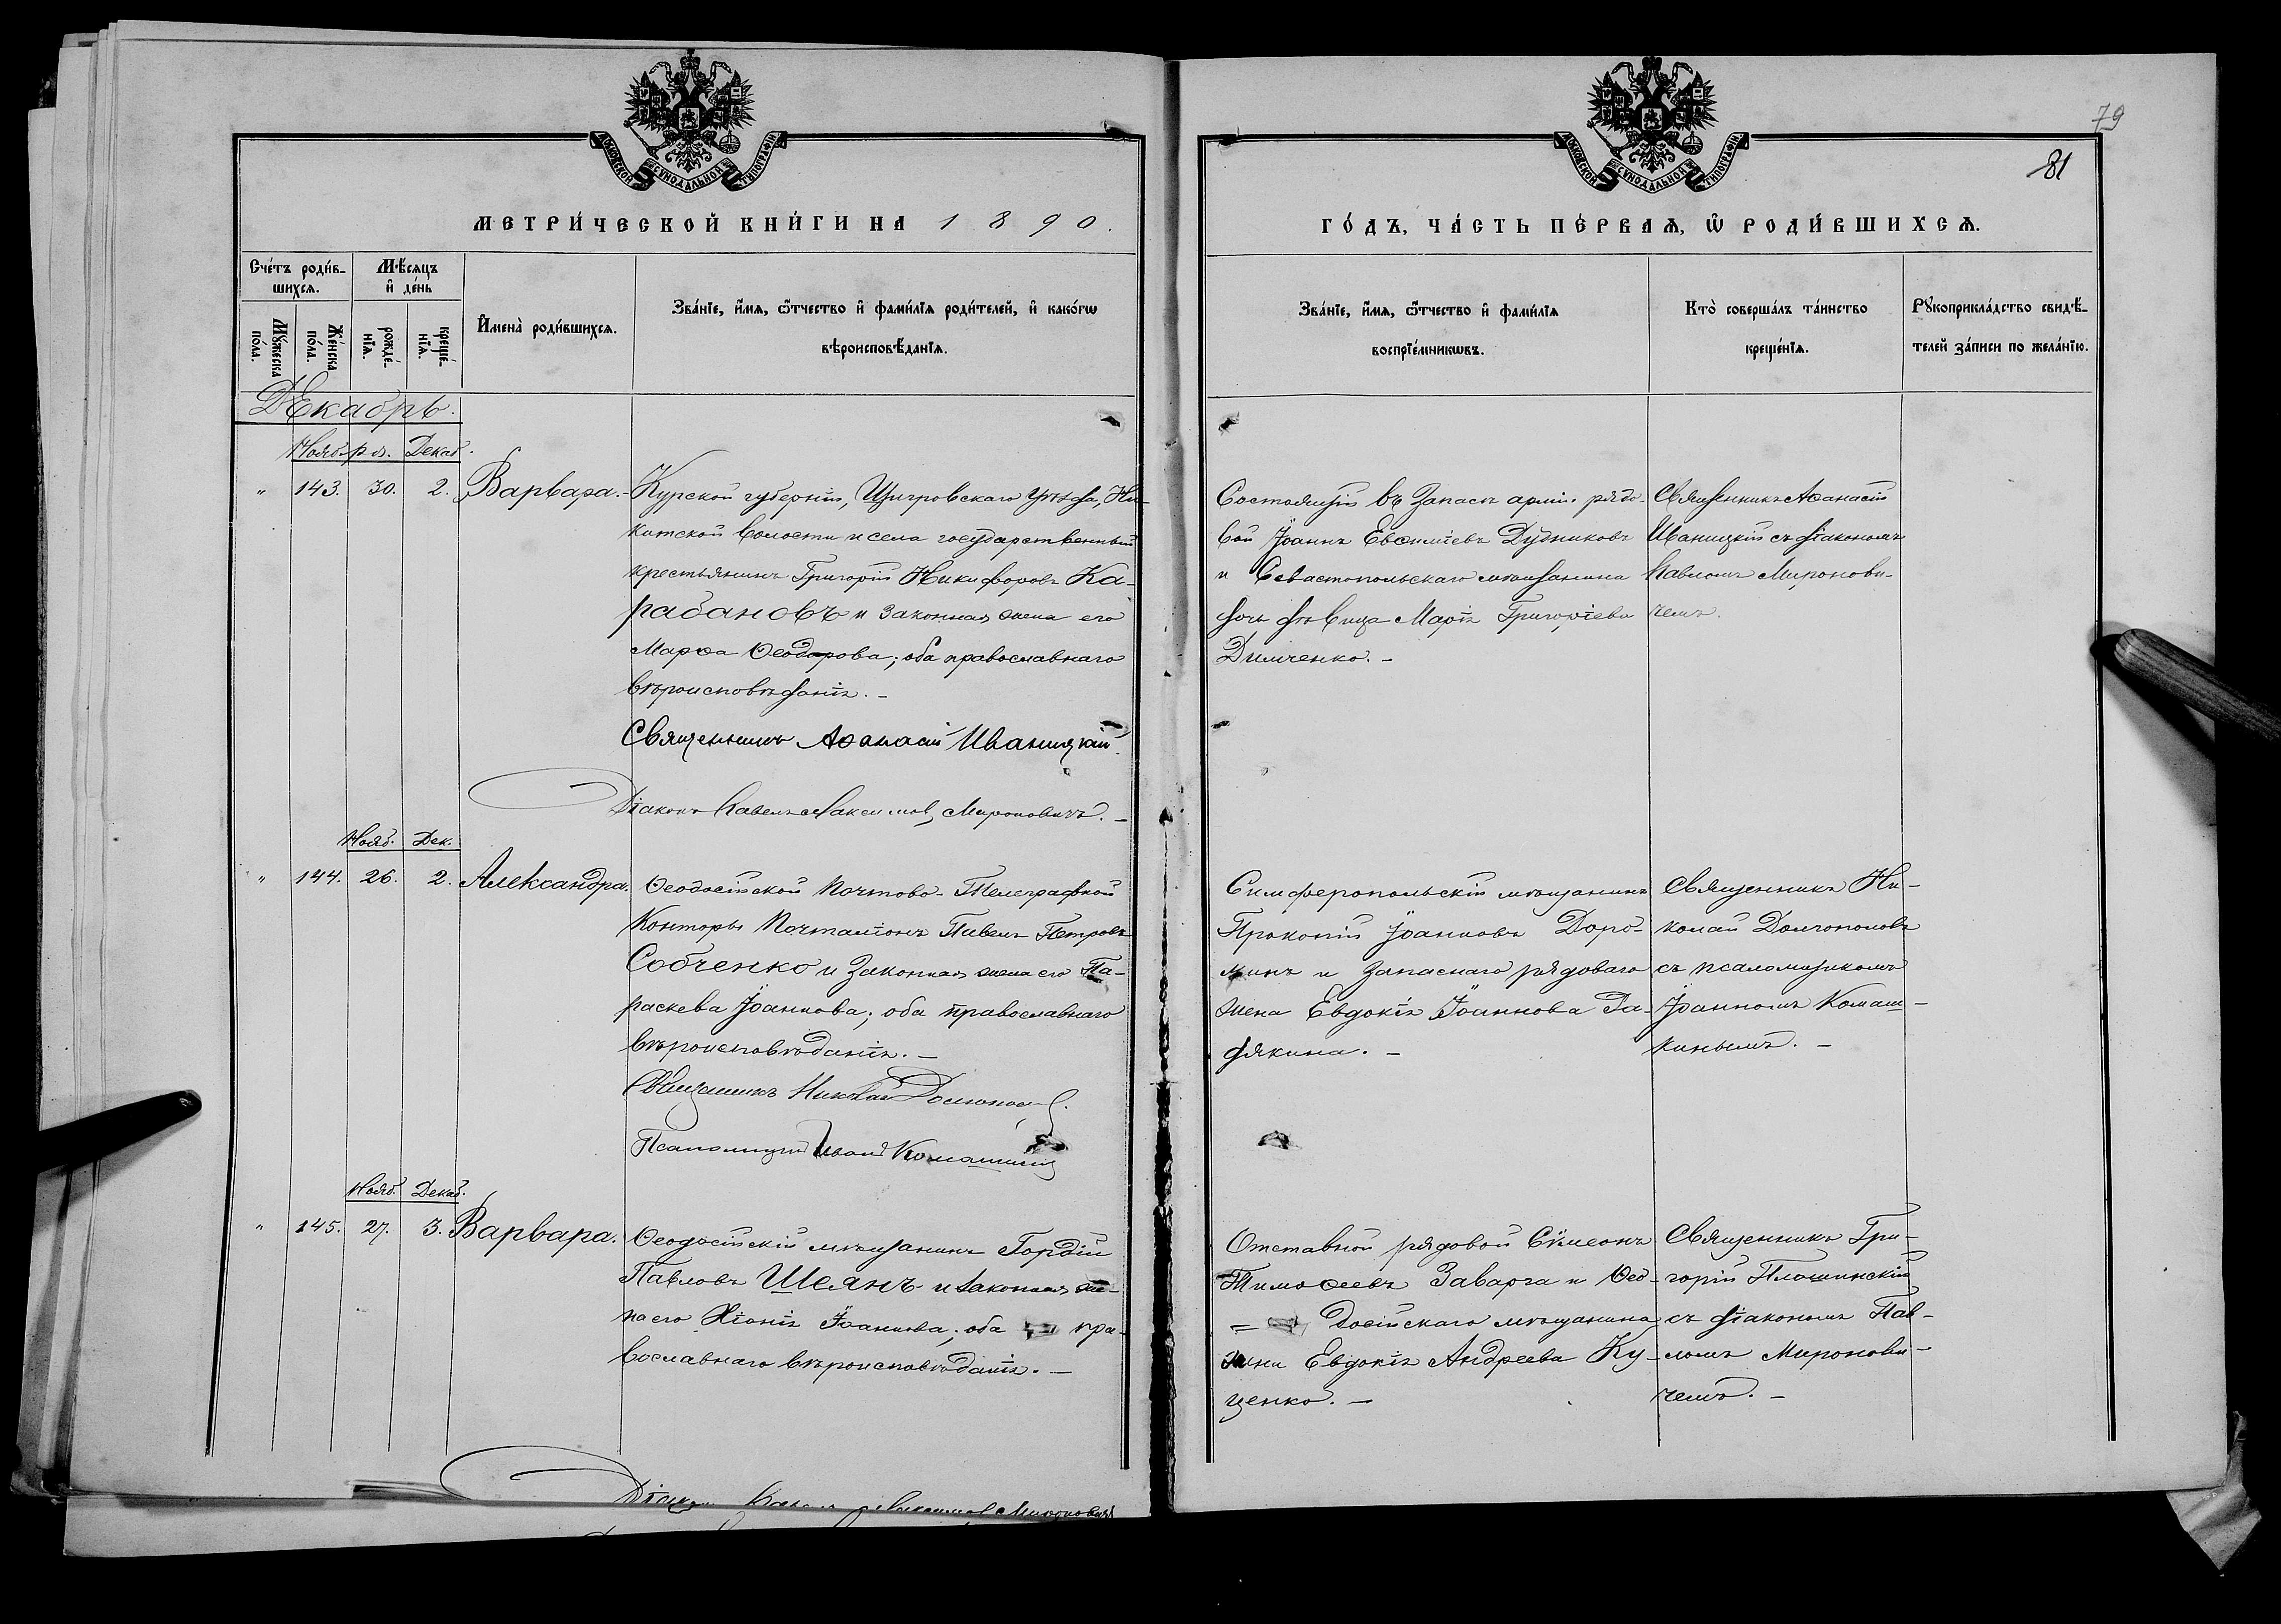 МОСКОВСКОЙ СѴНОДАЛЬНОЙ ТИПОГРАФІИ
МЕТРИ́ЧЕСКОЙ КНИ́ГИ НА 1890.
Сче́тъ роди́в-
шихсѧ.
Мѣ́сѧцъ
и҆ де́нь
Мꙋ́жеска
по́ла.
Же́нска
по́ла.
рожде́-
нїѧ.
креще́-
нїѧ.
И҆мена̀ роди́вшихсѧ.
Зва́нїе, и҆́мѧ, ѻ҆́тчество и҆ фами́лїѧ роди́телей, и҆ како́гѡ
вѣроисповѣ́данїѧ.
Декабрь.
Ноября. Декаб.
" 143. 30. 2. Варвара.
Курской губерніи, Щигровскаго уѣзда, Ни-
китской волости и села государственный
крестьянинъ Григорій Никифоровъ Ка-
рабановъ и законная жена его
Марѳа Ѳеодорова; оба православнаго
вѣроисповѣданія. –
Священникъ Аѳанасій Иваницкій.
Діаконъ Павелъ Максимов. Мироновичъ. –
Нояб. Дек.
" 144. 26. 2. Александра.
Ѳеодосійской Почтово-Телеграфной
Конторы Почталіонъ Павелъ Петровъ
Собченко и законная жена его Па-
раскева Іоаннова; оба православнаго
вѣроисповѣданія. –
Священникъ Николай Долгополов.
Псаломщикъ Иванъ Комашкинъ
Нояб. Декаб.
" 145. 27. 3. Варвара.
Ѳеодосійскій мѣщанинъ Гордій
Павловъ Шеянъ и законная же-
на его Хіонія Іоаннова; оба пра-
вославнаго вѣроисповѣданія. –
Діаконъ Павелъ Максимов Мироновичъ
79
81
МОСКОВСКОЙ СѴНОДАЛЬНОЙ ТИПОГРАФІИ
ГО́ДЪ, ЧА́СТЬ ПЕ́РВАѦ, Ѡ҆ РОДИ́ВШИХСѦ.
Зва́нїе, и҆́мѧ, ѻ҆́тчество и҆ фами́лїѧ
воспрїе́мникѡвъ.
Кто̀ соверша́лъ та́инство
креще́нїѧ.
Рꙋкоприкла́дство свидѣ́-
телей за́писи по жела́нїю.
Состоящій въ запасѣ арміи рядо-
вой Іоаннъ Евѳиміевъ Дубниковъ
и Севастопольскаго мѣщанина
дочь дѣвица Марія Григоріева
Димченко. –
Священникъ Аѳанасій
Иваницкій съ діакономъ
Павломъ Миронови-
чемъ.
Симферопольскій мѣщанинъ
Прокопій Іоанновъ Доро-
нинъ и запаснаго рядоваго
жена Евдокія Іоаннова За-
дякина. –
Священникъ Ни-
колай Долгополовъ
съ псаломщикомъ
Іоанномъ Комаш-
кинымъ. –
Отставной рядовой Сѵмеонъ
Тимоѳеевъ Заварга и Ѳео-
досійскаго мѣщанина
жена Евдокія Андреева Ку-
ценко. –
Священникъ Гри-
горій Плошинскій
съ діакономъ Пав-
ломъ Миронови-
чемъ. –